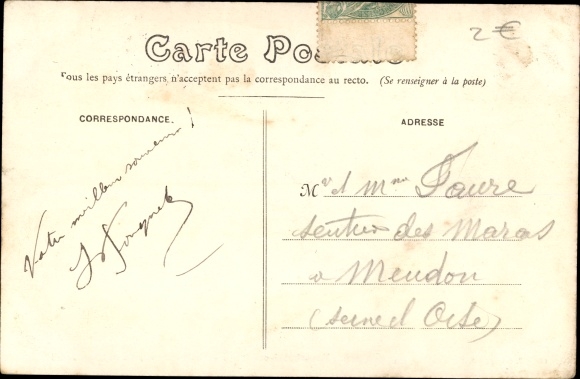 2€
Carte Postale
Tous les pays étrangers n'acceptent pas la correspondance au recto. (Se renseigner à la poste)
CORRESPONDANCE.
ADRESSE
souvenir !
M r et Mme Faure
sentier des Maras
a Meudon
(seine et Oise)